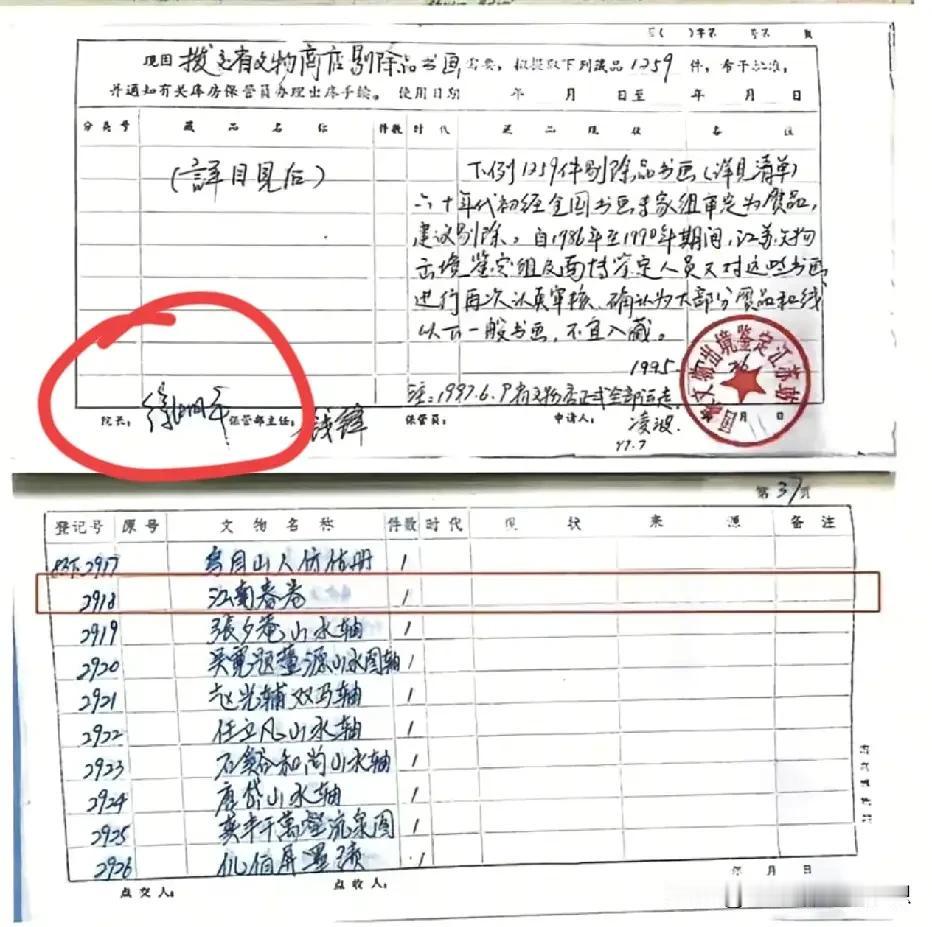 现因拨交省文物商店剔除品书画需要，拟提取下列藏品1259件，希予批准，
并通知有关库房保管员办理出库手续。使用日期 年 月 日至 年 月 日
分类号 藏品名称 件数 时代 藏品现状 备注
（詳目見后）
下列1259件剔除品书画（详見清单）
六十年代初经全国书画专家组审定为赝品，
建议剔除，自1986年至1990年期间，江苏文物
出境鉴定组及南博鉴定人员又对这些书画
进行再次认真审核、确认为大部分赝品和线
以下一般书画，不宜入藏。
1995
注：1997.6.9省文物店正式全部运走
院长： 徐湖平 保管部主任： 钱锋 保管员： 申请人： 凌波
97.7
国家文物出境鉴定江苏站
月 日
第37页
登记号 原号 文物名称 件数 时代 现状 来源 备注
2917 烏目山人仿古册 1
2918 江南春卷 1
2919 張夕庵山水轴 1
2920 吴寬题董源山水图轴 1
2921 赵光辅双马轴 1
2922 任立凡山水轴 1
2923 石谿和尚山水轴 1
2924 唐岱山水轴 1
2925 千萬壑流泉图 1
2926 伯屏墨 1
年 月 日
点交人： 点收人：